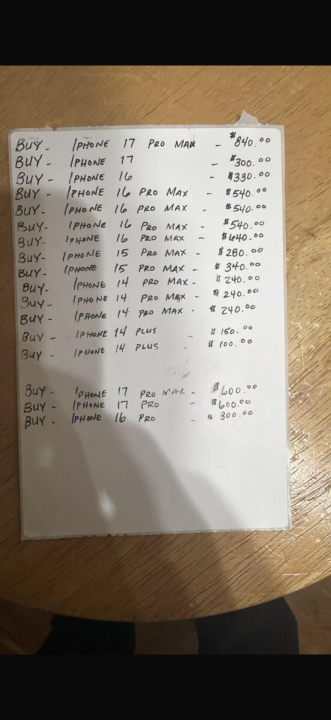 BUY - IPHONE 17 PRO MAX - $840.00
BUY - IPHONE 17 - $300.00
BUY - IPHONE 16 - $330.00
BUY - IPHONE 16 PRO MAX - $540.00
BUY - IPHONE 16 PRO MAX - $540.00
BUY - IPHONE 16 PRO MAX - $540.00
BUY - IPHONE 16 PRO MAX - $440.00
BUY - IPHONE 15 PRO MAX - $280.00
BUY - IPHONE 15 PRO MAX - $340.00
BUY - IPHONE 14 PRO MAX - $240.00
BUY - IPHONE 14 PRO MAX - $240.00
BUY - IPHONE 14 PRO MAX - $240.00
BUY - IPHONE 14 PLUS - $150.00
BUY - IPHONE 14 PLUS - $100.00
BUY - IPHONE 17 PRO MAX - $600.00
BUY - IPHONE 17 PRO - $600.00
BUY - IPHONE 16 PRO - $300.00